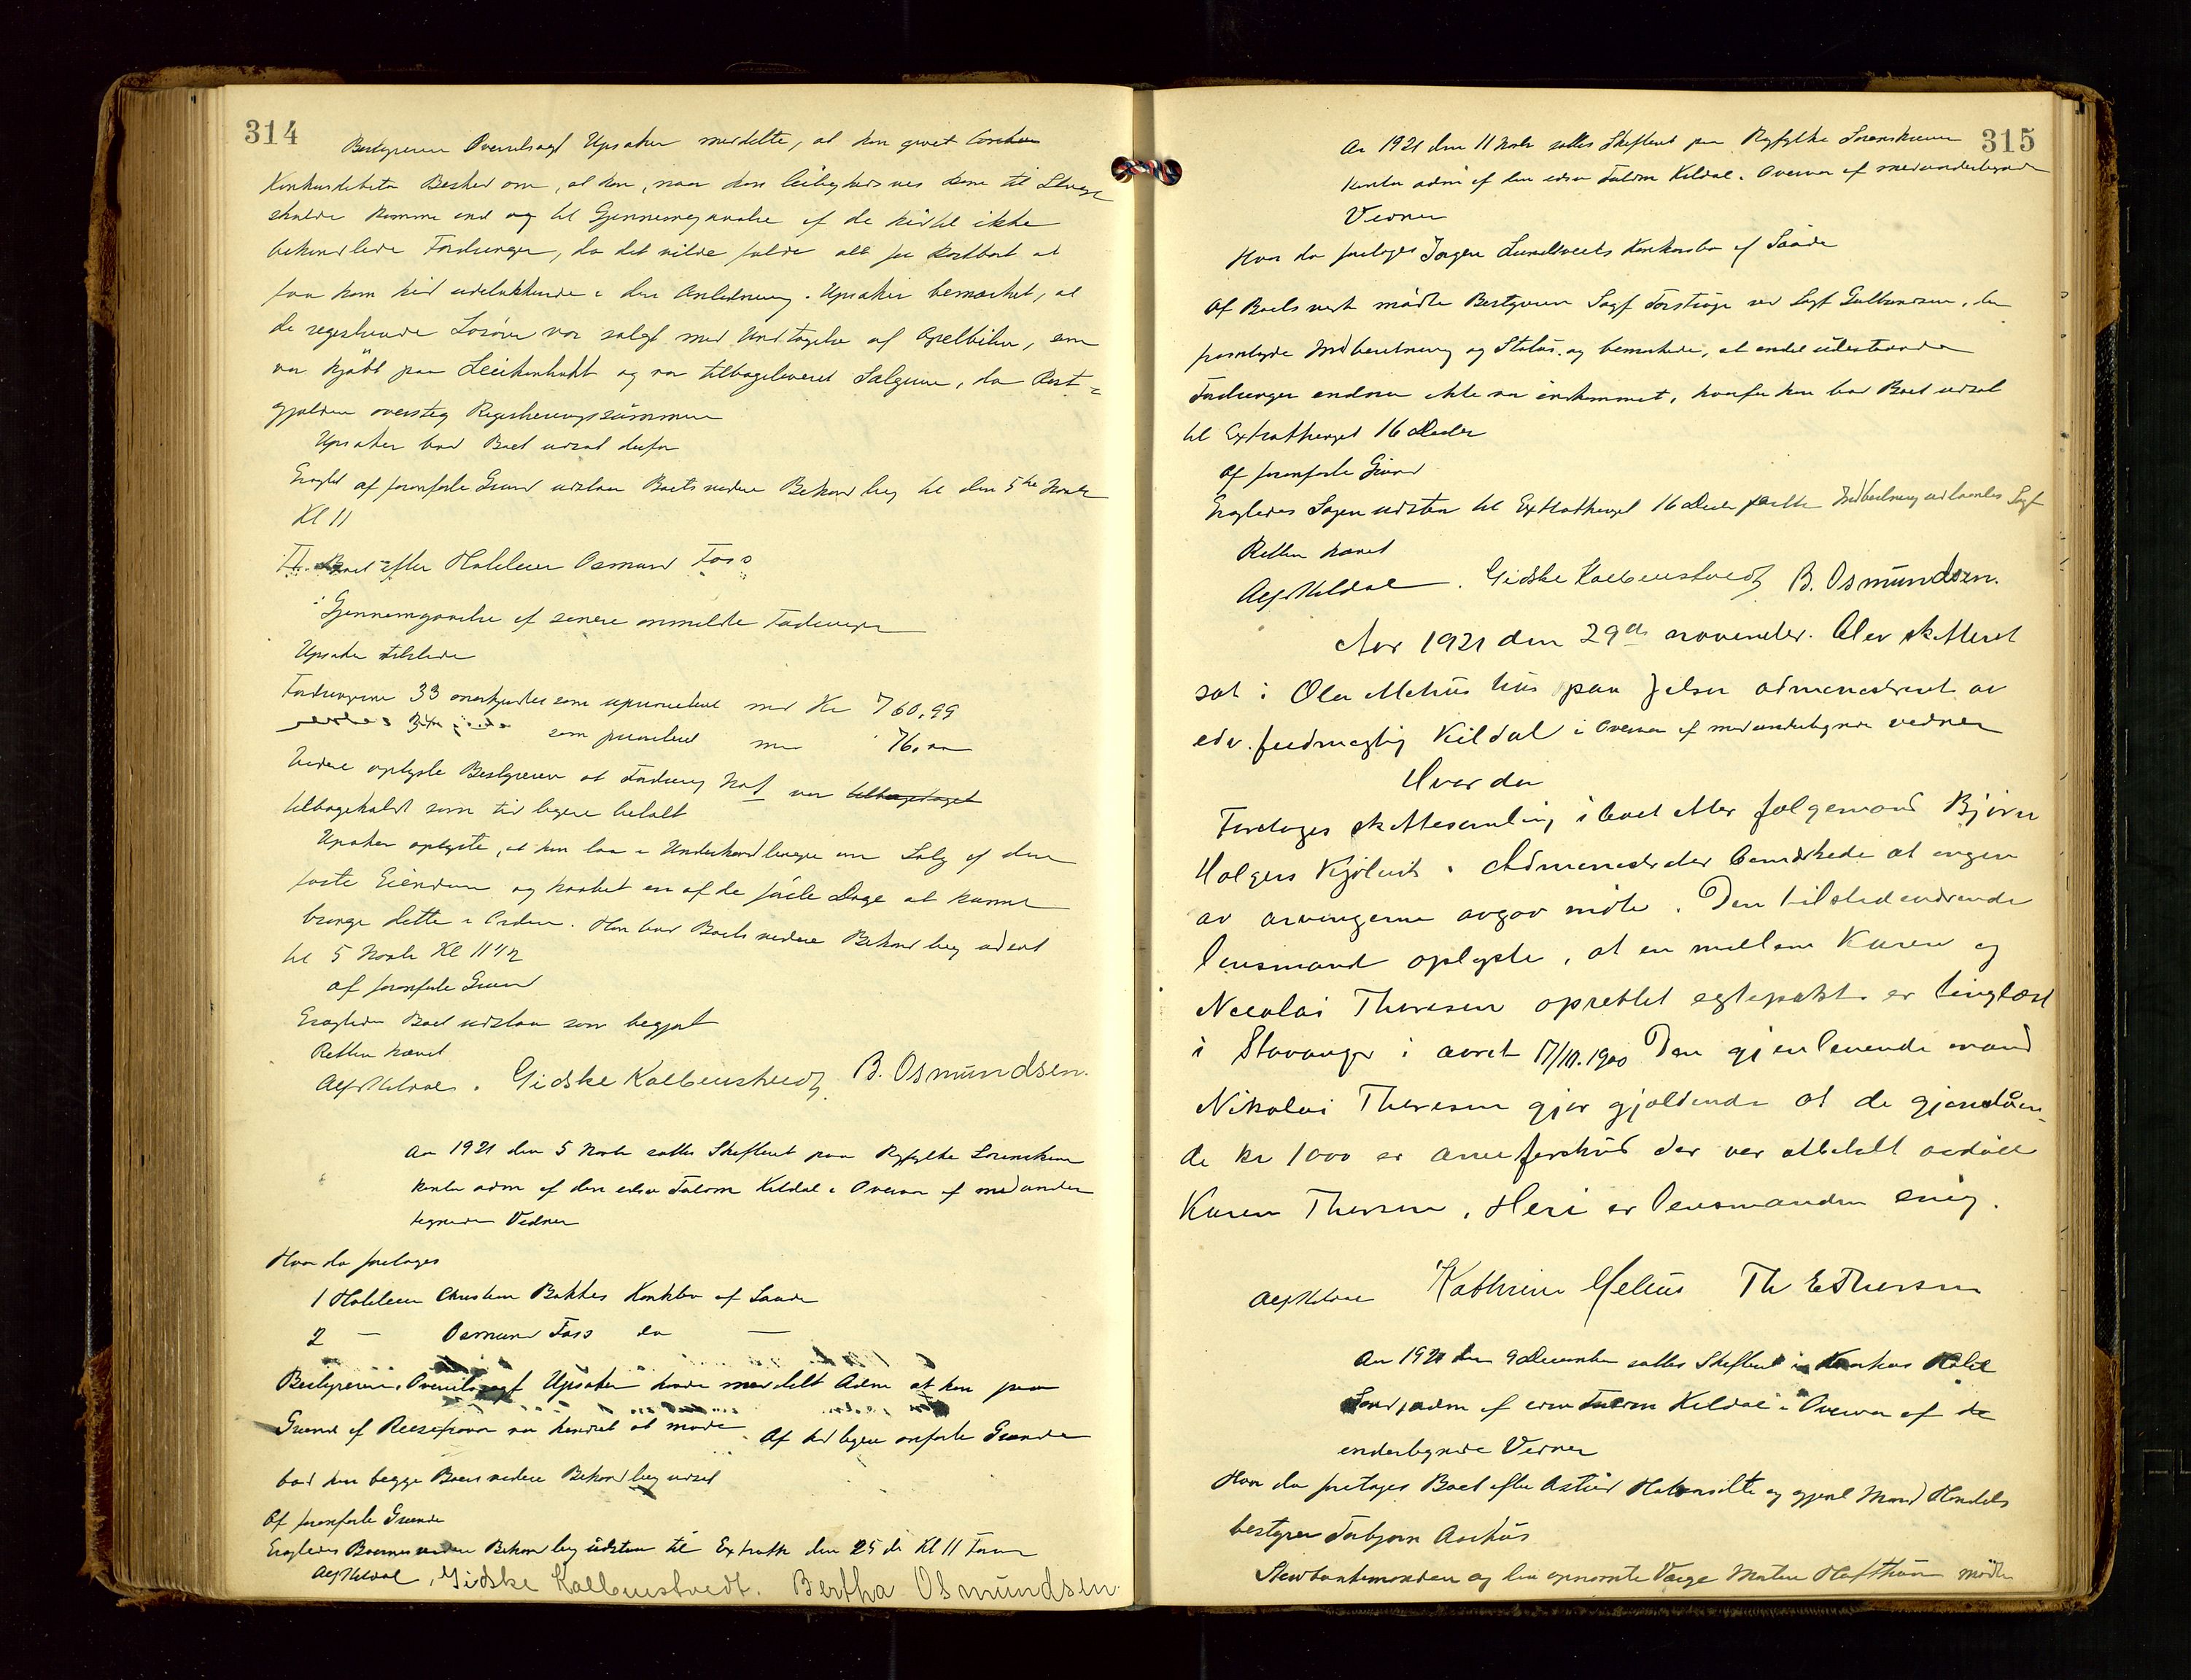 314
Bestyreren Overretssagf Upsaker meddelte, at han givet
Konkursdebitor Besked om, at han, naar hans Leilighed var dene til Stavgr
skulde komme ind og til Gjennemgaaelse af de hidtil ikke
behandlede Fordringer, da det vilde falde alt for kostbart at
faa ham hid udelukkende i den Anledning. Upsaker bemærket, at
de registrerede Løsøre var solgt med Undtagelse af Opelbilen, som
var kjøbt paa Leiekontrakt og var tilbageleveret Sælgerne, da Rest-
gjælden oversteg Registreringssummen
Upsaker bad Boet udsat derfor
Eragted af foranførte Grund udstaa Boets videre Behandling til den 5te Novbr
Kl 11
II. Boet efter Hoteleier Osmund Foss
Gjennemgaaelse af senere anmeldte Fordringer
Upsaker tilstede
Fordringerne 33 anerkjendtes som uprioriteret med Kr 760,99
som prioriteret med 76,00
Videre oplyste Bestyreren at Fordring No 1 var tilbagetaget
tilbagekaldt som tidligere betalt
Upsaker oplyste, at han laa i Underhandlinger om Salg af den
faste Eiendom og haabet en af de første Dage at kunne
bringe dette i Orden. Han bad Boets videre Behandling udsat
til 5 Novbr Kl 11 1/2
af foranførte Grund
Eragtedes Boet udstaa som begjært
Retten hævet
Alf Kildal. Gidske Kolbenstvedt B. Osmundsen.
Aar 1921 den 5 Novbr sattes Skifteret paa Ryfylke Sorenskriver
kontor adm af den edsv Fuldm Kildal i Overvær af medunder
tegnede Vidner
Hvor da foretoges
1 Hoteleier Christian Bakkes Konkbo af Sande
2 — Osmund Foss do —
Bestyreren Overretssagf Upsaker havde meddelt Adm at han paa
Grund af Reisefravær var hindret at møde. Af tidligere anførte Grunde
bad han begge Boers videre Behandling udsat
Af foranførte Grunde
Eragtedes Boernes videre Behandling udstaa til Extrarett den 25 ds Kl 11 Form
Alf Kildal, Gidske Kolbenstvedt. Bertha Osmundsen.
315
Aar 1921 den 11 Novbr sattes Skifteret paa Ryfylke Sorenskriver
kontor adm af den edsv Fuldm Kildal i Overvær af medundertegnede
Vidner
Hvor da foretoges Jørgen Lundtveits Konkursbo af Saude
Af Boets vegne mødte Bestyreren Sagf Torstrup ved Sagf Gulbrandsen, der
fremlagde Indberetning og Status og bemerkede, at endel udestaaende
Fordringer endnu ikke var indkommet, hvorfor han bad Boet udsat
til Extratheget 16 Decbr
Af foranførte Grund
Eragtedes Sagen udstaa til Extrathinget 16 Decbr Indberetning udlaantes Sagf
Retten hævet
Alf Kildal. Gidske Kolbenstvedt B. Osmundsen.
Aar 1921 den 29de november. Blev skifteret
sat i Olea Melius hus paa Jelsa administreret av
edsv. fuldmægtig Kildal i Overvær af medundertegnede vidner
Hvor da
Foretoges skiftesamling i boet etter følgemand Bjørn
Holgers Kjølvik. Administrator bemærkede at ingen
av arvingerne avgav møte. Den tilstedeværende
lensmand oplyste, at en mellem Karen og
Nicolai Thersen oprettet egtepakt er tinglæst
i Stavanger i aaret 17/10.1900 Den gjenlevende mand
Nikolai Thersen gjør gjældende at de gjenstaaen-
de kr 1000 er arveforskud der var utbetalt avdøde
Karen Thersen. Heri er lensmanden enig.
Alf Kildal Kathrine Melius Th E Thersen
Aar 1921 den 9 December sattes Skifteret i
Sand, adm af edsv Fuldm Kildal i Overvær af de
undertegnede Vidner
Hvor da foretoges Boet efter Astrid og gjenl Mand Handels
bestyrer Torbjørn Aarhus
Stervboenkemanden og den opnævnte Værge mødte